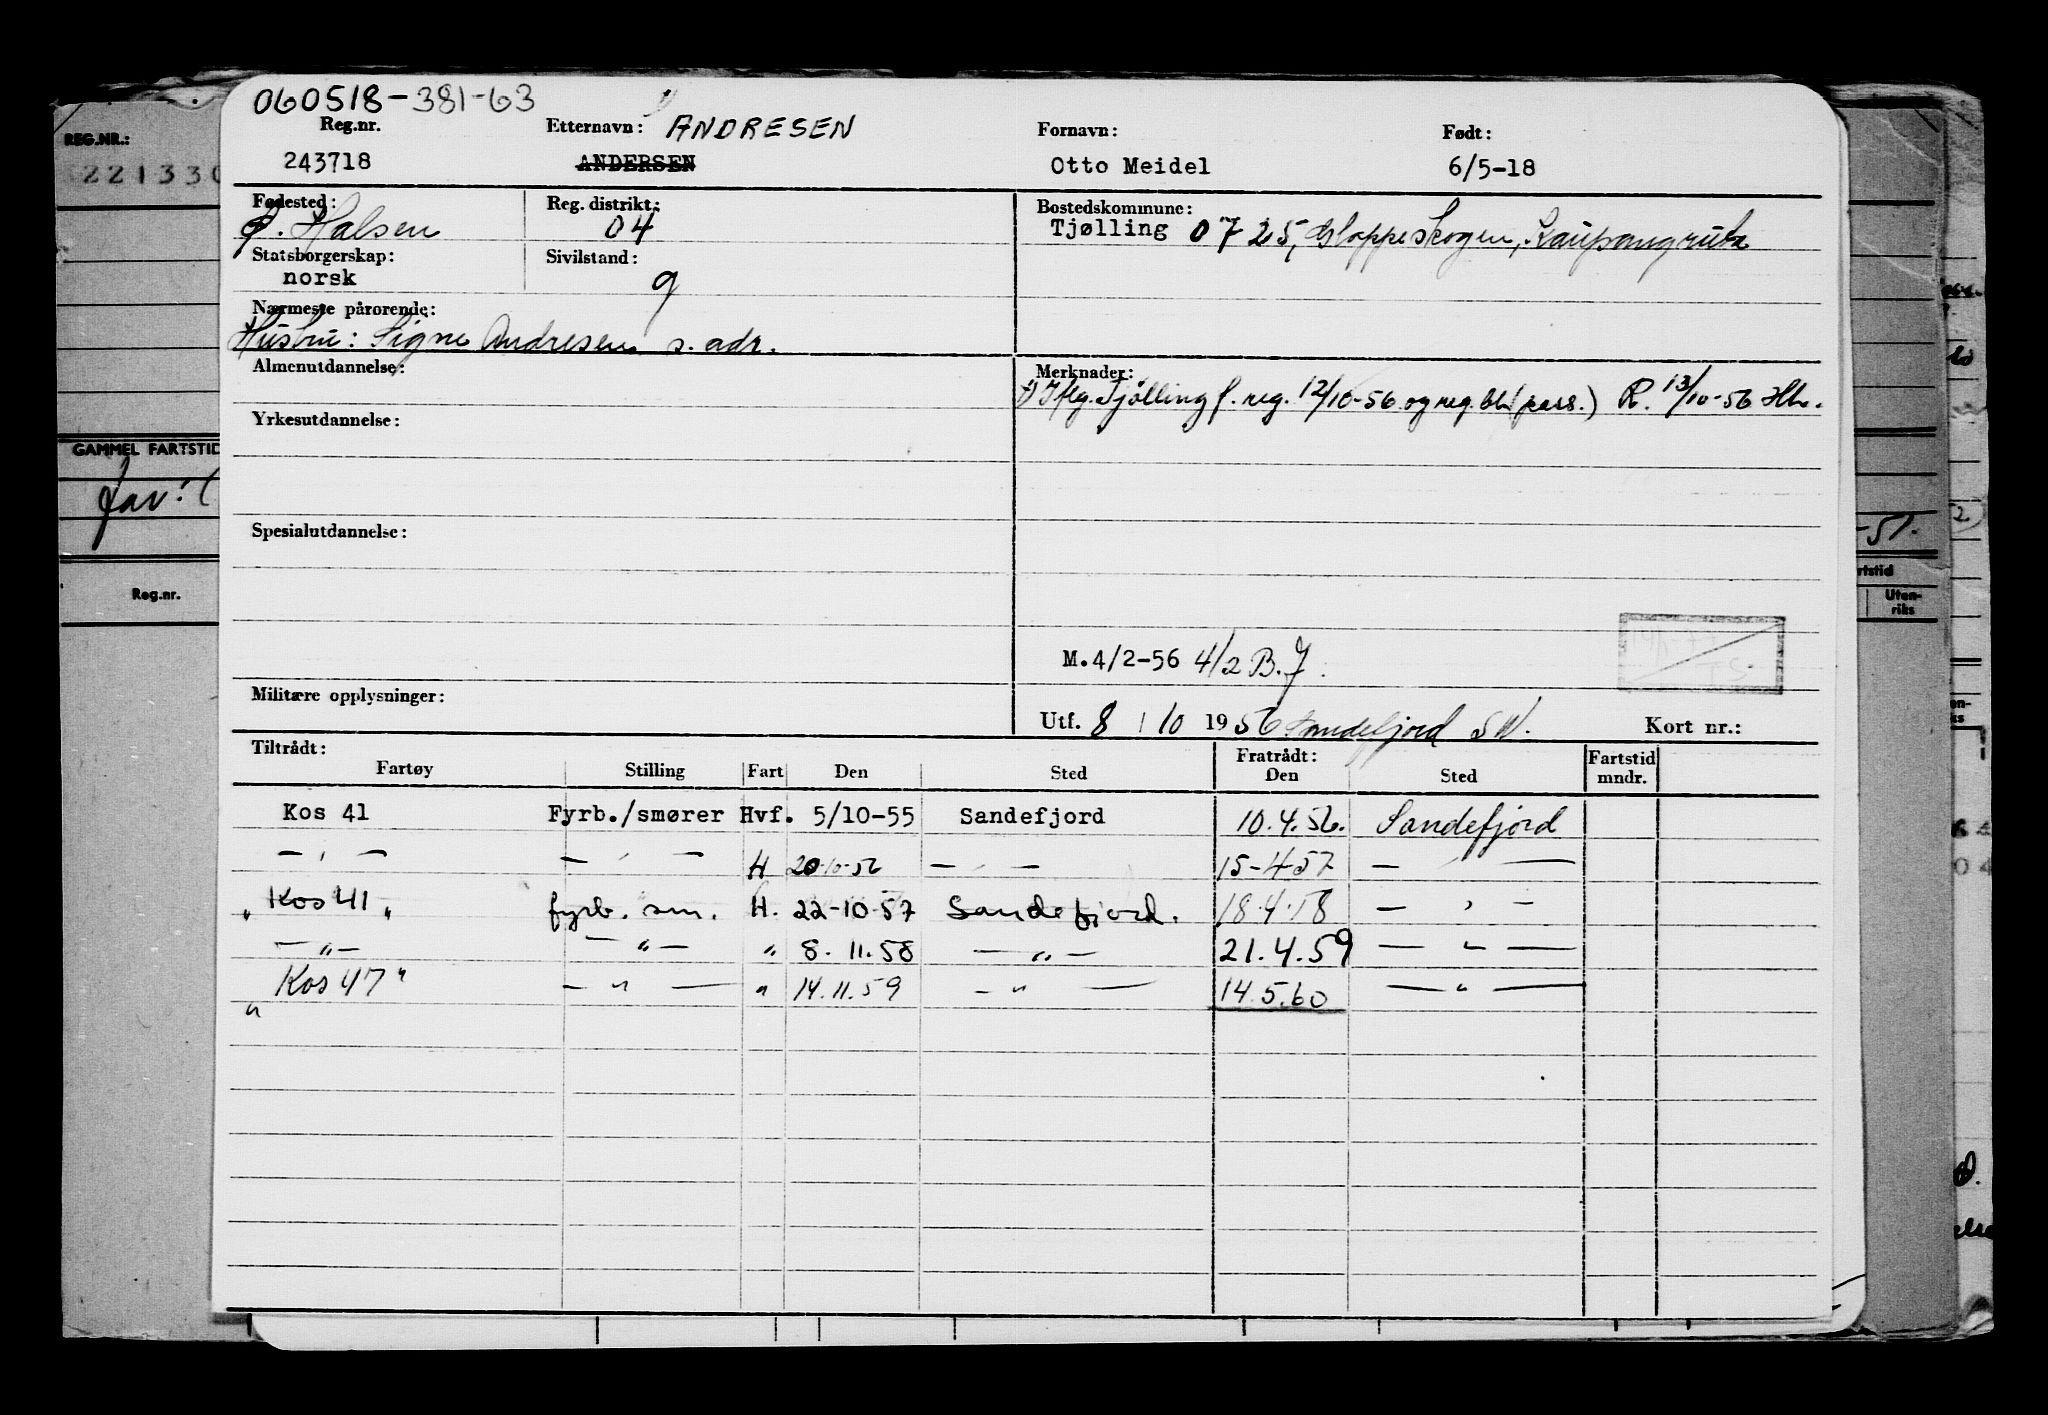 060518-381-63
REG.NR.:
Reg.nr. Etternavn: ANDRESEN Fornavn: Født:
243718 ANDERSEN Otto Meidel 6/5-18
221330
Fødested: Reg. distrikt: Bostedskommune:
Ø. Halsen 04 Tjølling 0725, Gloppeskogen, Kaupangruta
Statsborgerskap: Sivilstand:
norsk g
Nærmeste pårørende:
Hustru: Signe Andresen s. adr.
Almenutdannelse: Merknader:
Tjølling f. reg. 12/10-56 og reg. bl. (pass.) R. 13/10-56
Yrkesutdannelse:
GAMMEL FARTSTID
Spesialutdannelse:
-51.
Reg.nr.
rtstid
Uten-
riks
M.4/2-56 4/2 B.J.
Militære opplysninger:
Utf. 8 / 10 1956 Sandefjord S.W. Kort nr.:
Tiltrådt: Fratrådt: Fartstid
Fartøy Stilling Fart Den Sted Den Sted mndr.
Kos 41 Fyrb./smører Hvf. 5/10-55 Sandefjord 10.4.56. Sandefjord
— " — — " — H 20-10-56 — " — 15-4-57 — " —
" Kos 41 " fyrb. sm. H. 22-10-57 Sandefjord. 18.4.58 — " —
— " — — " — " 8. 11. 58 — " — 21.4.59 — " —
" Kos 47 " — " — " 14.11.59 — " — 14.5.60 — " —